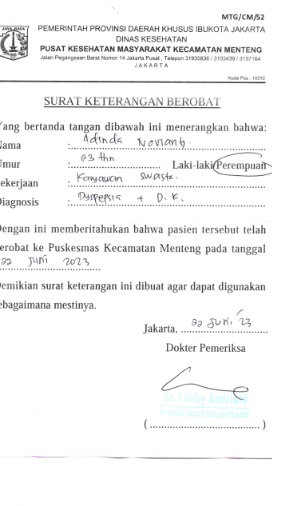 MTG/CM/52
PEMERINTAH PROVINSI DAERAH KHUSUS IBUKOTA JAKARTA
DINAS KESEHATAN
PUSAT KESEHATAN MASYARAKAT KECAMATAN MENTENG
Jalan Pegangsaan Barat Nomor 14 Jakarta Pusat, Telepon 31930836 / 3103439 / 3157164
JAKARTA
Kode Pos : 10310
SURAT KETERANGAN BEROBAT
Yang bertanda tangan dibawah ini menerangkan bahwa:
Nama : Adinda
Umur : 23 thn Laki-laki/Perempuan
Pekerjaan : Karyawan Swasta
Diagnosis : Dyspepsia + D.K.
Dengan ini memberitahukan bahwa pasien tersebut telah
berobat ke Puskesmas Kecamatan Menteng pada tanggal
22 Juni 2023
Demikian surat keterangan ini dibuat agar dapat digunakan
sebagaimana mestinya.
Jakarta, 22 Juni '23
Dokter Pemeriksa
(..............................)